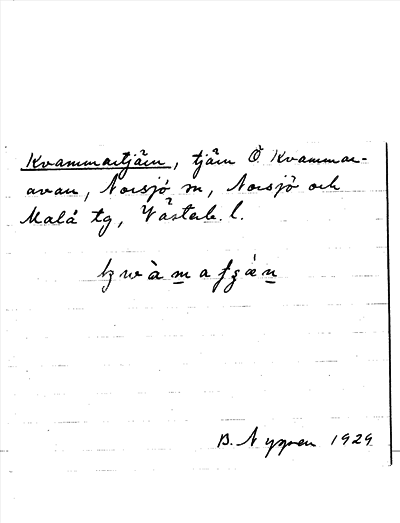 Kvammartjärn, tjärn Ö Kvammar-
avan, Norsjö sn, Norsjö och
Malå tg, Västerb. l.
B. Nygren 1929